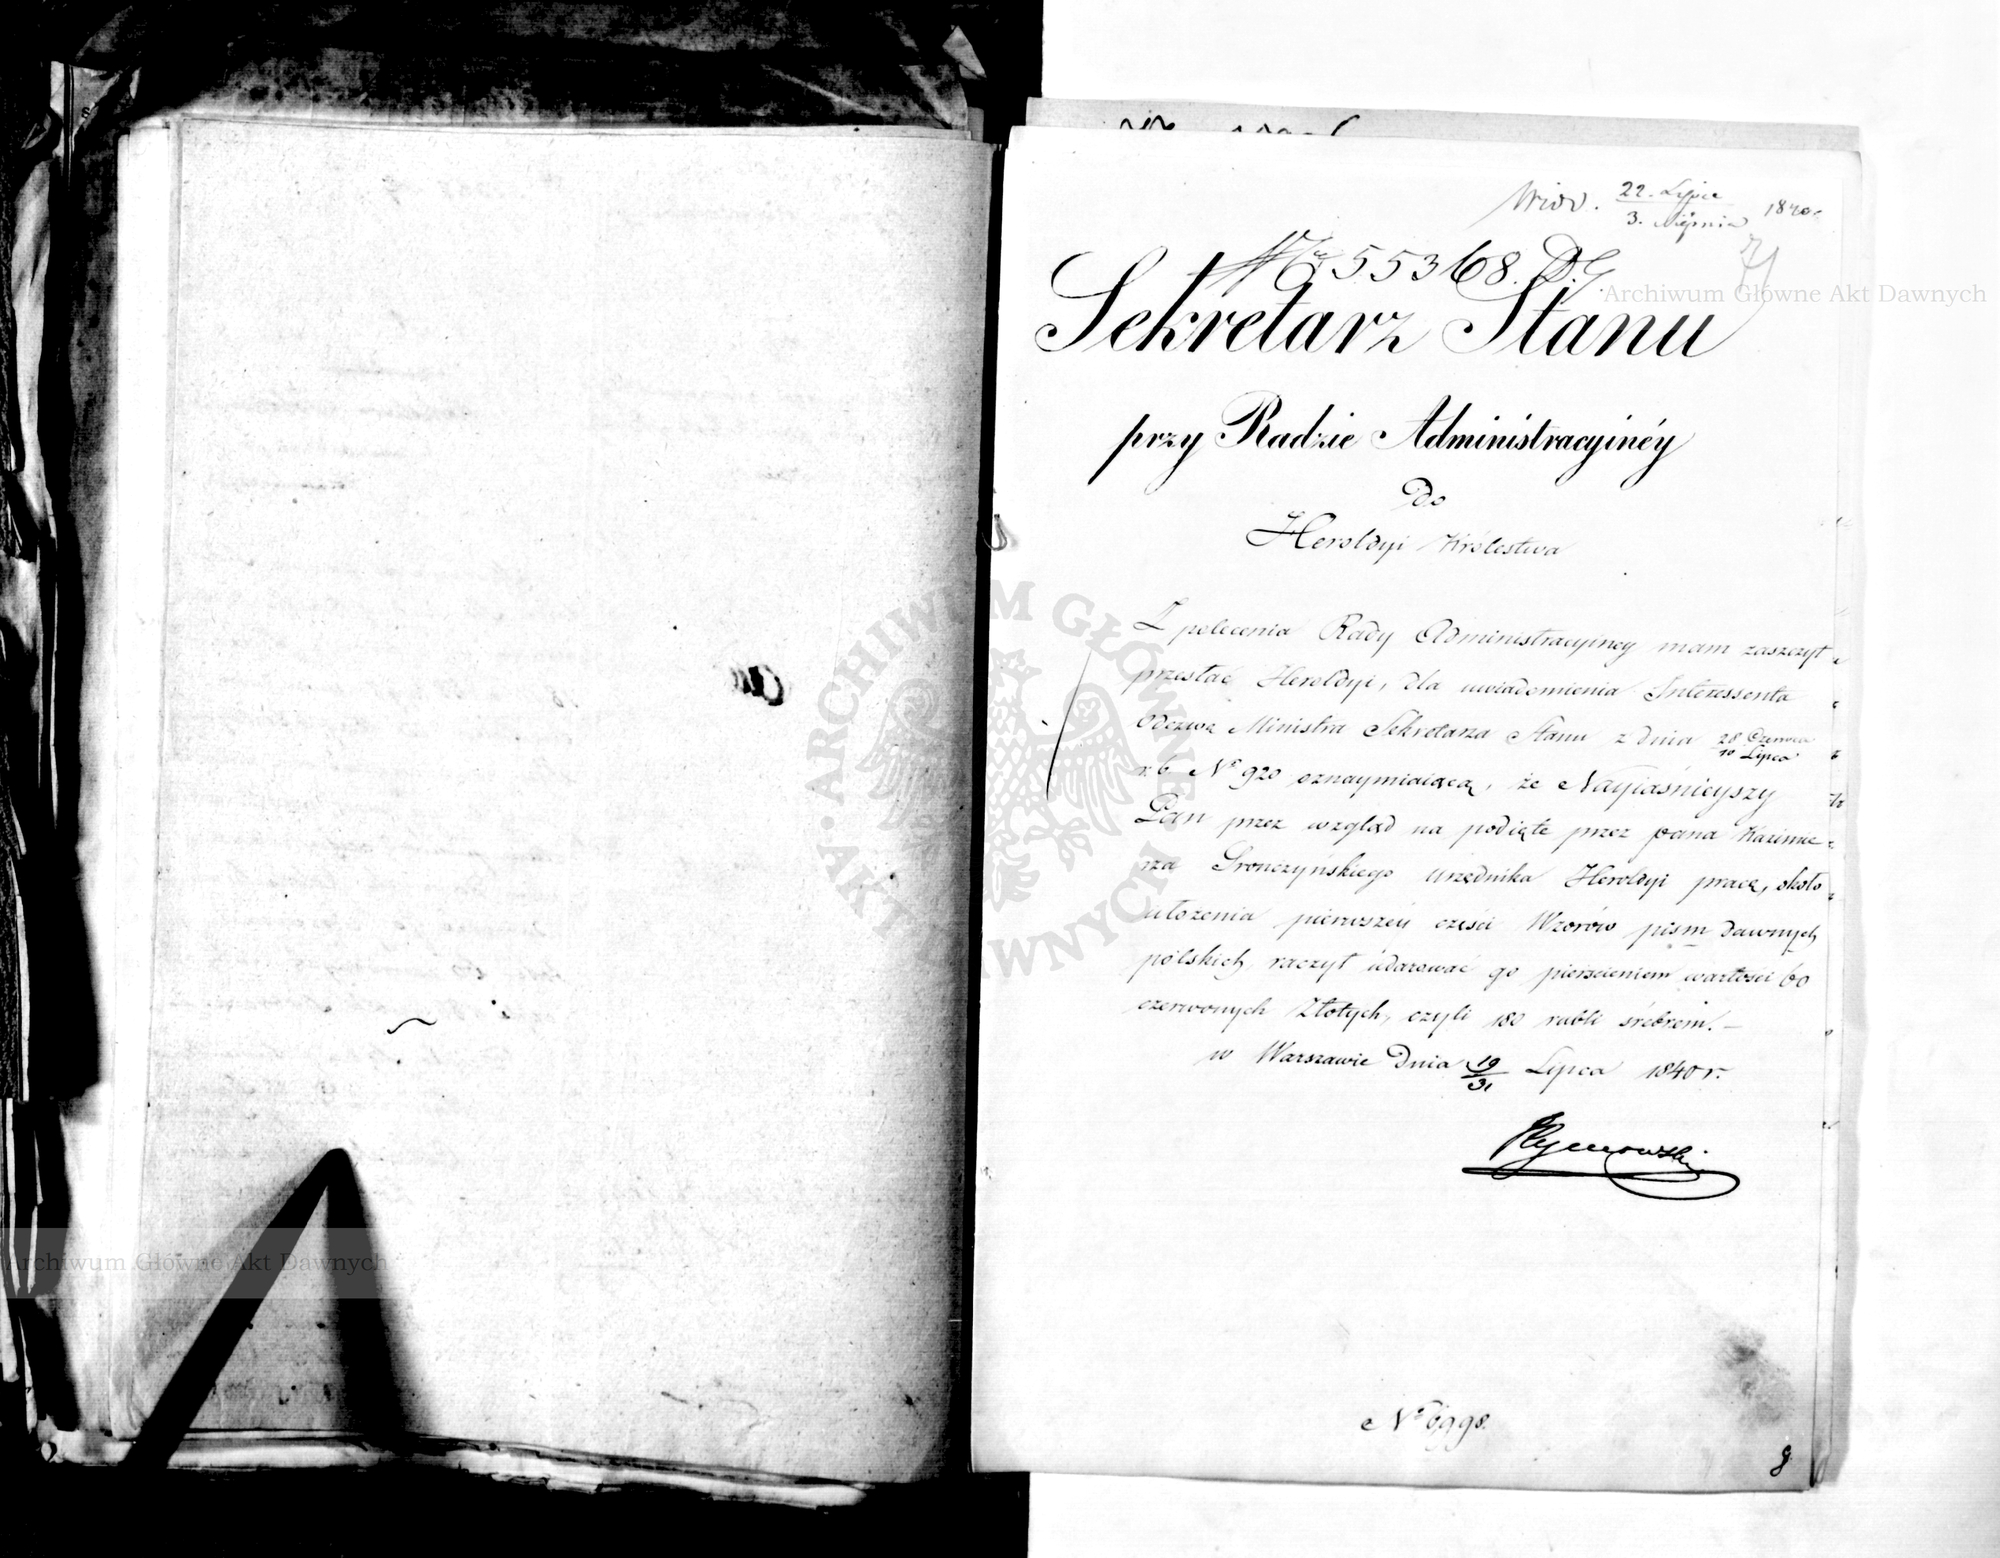 Wriov. 22. Lipca / 3. Sierpnia 1840.
Nr 55368. D.G.
Archiwum Główne Akt Dawnych
Sekretarz Stanu
przy Radzie Administracyinéy
Do
Heroldyi Królestwa
Z polecenia Rady Administracyiney mam zaszczyt
przesłać Heroldyi, dla uwiadomienia Interessenta
odezwę Ministra Sekretarza Stanu z dnia 28 Czerwca / 10 Lipca
r. b. Nº 920 oznaymiaiącą, że Nayiaśnieyszy
Pan przez wzgląd na podięte przez pana Kazimie-
rza Stronczyńskiego urzędnika Heroldyi pracę, około
ułożenia pierwszey części Wzorów pism dawnych
polskich, raczył udarować go pierścieniem wartości 60
czerwonych złotych, czyli 180 rubli srebrem. —
w Warszawie dnia 19/31 Lipca 1840 r.
Nº 6998.
8
ARCHIWUM GŁÓWNE AKT DAWNYCH
Archiwum Główne Akt Dawnych